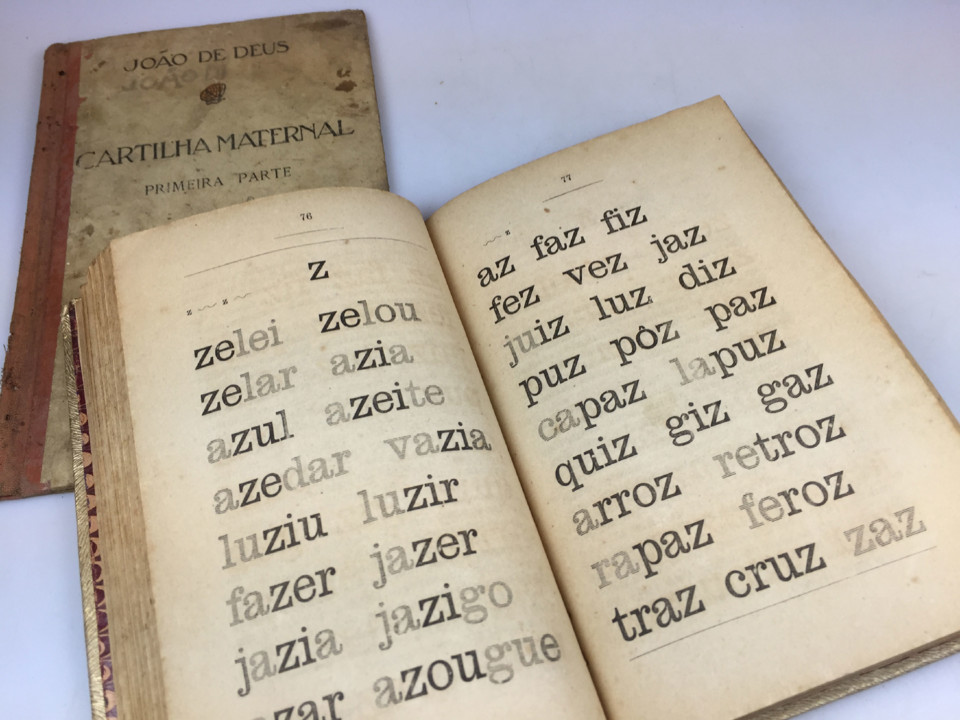 JOÃO DE DEUS
CARTILHA MATERNAL
PRIMEIRA PARTE
76
z
z z
zelei zelou
zelar azia
azul azeite
azedar vazia
luziu luzir
fazer jazer
jazia jazigo
azougue
77
z
az faz fiz
fez vez jaz
juiz luz diz
puz pôz paz
capaz lapuz
quiz giz gaz
arroz retroz
rapaz feroz
traz cruz zaz